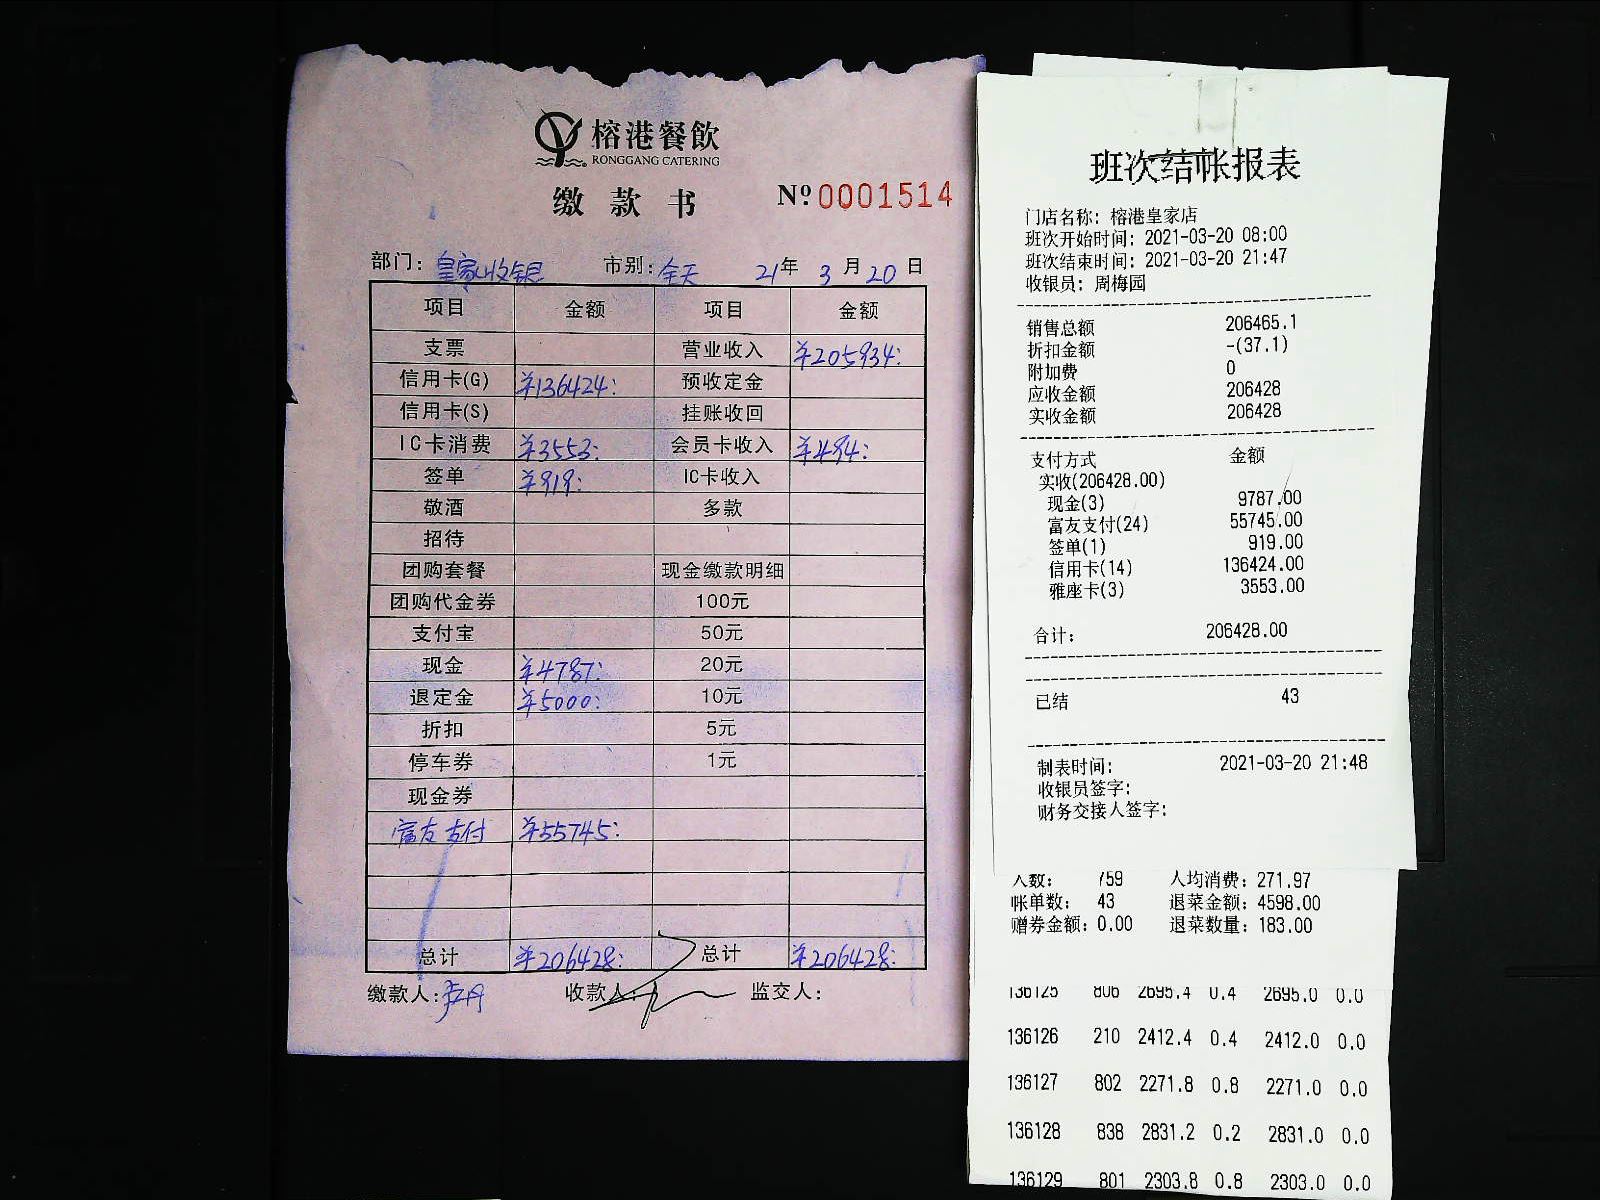 榕港餐飲
RONGGANG CATERING
缴款书 Nº0001514
部门：皇家收银 市别：全天 21年 3月 20日
项目 金额 项目 金额
支票 营业收入 ¥205934:
信用卡(G) ¥136424: 预收定金
信用卡(S) 挂账收回
IC卡消费 ¥3553: 会员卡收入 ¥494:
签单 ¥919: IC卡收入
敬酒 多款
招待
团购套餐 现金缴款明细
团购代金券 100元
支付宝 50元
现金 ¥4787: 20元
退定金 ¥5000: 10元
折扣 5元
停车券 1元
现金券
富友支付 ¥55745:
总计 ¥206428: 总计 ¥206428:
缴款人： 收款人： 监交人：
班次结帐报表
门店名称：榕港皇家店
班次开始时间：2021-03-20 08:00
班次结束时间：2021-03-20 21:47
收银员：周梅园
销售总额 206465.1
折扣金额 -(37.1)
附加费 0
应收金额 206428
实收金额 206428
支付方式 金额
实收(206428.00)
现金(3) 9787.00
富友支付(24) 55745.00
签单(1) 919.00
信用卡(14) 136424.00
雅座卡(3) 3553.00
合计： 206428.00
已结 43
制表时间： 2021-03-20 21:48
收银员签字：
财务交接人签字：
人数： 759 人均消费：271.97
帐单数： 43 退菜金额：4598.00
赠券金额：0.00 退菜数量：183.00
136125 806 2695.4 0.4 2695.0 0.0
136126 210 2412.4 0.4 2412.0 0.0
136127 802 2271.8 0.8 2271.0 0.0
136128 838 2831.2 0.2 2831.0 0.0
136129 801 2303.8 0.8 2303.0 0.0